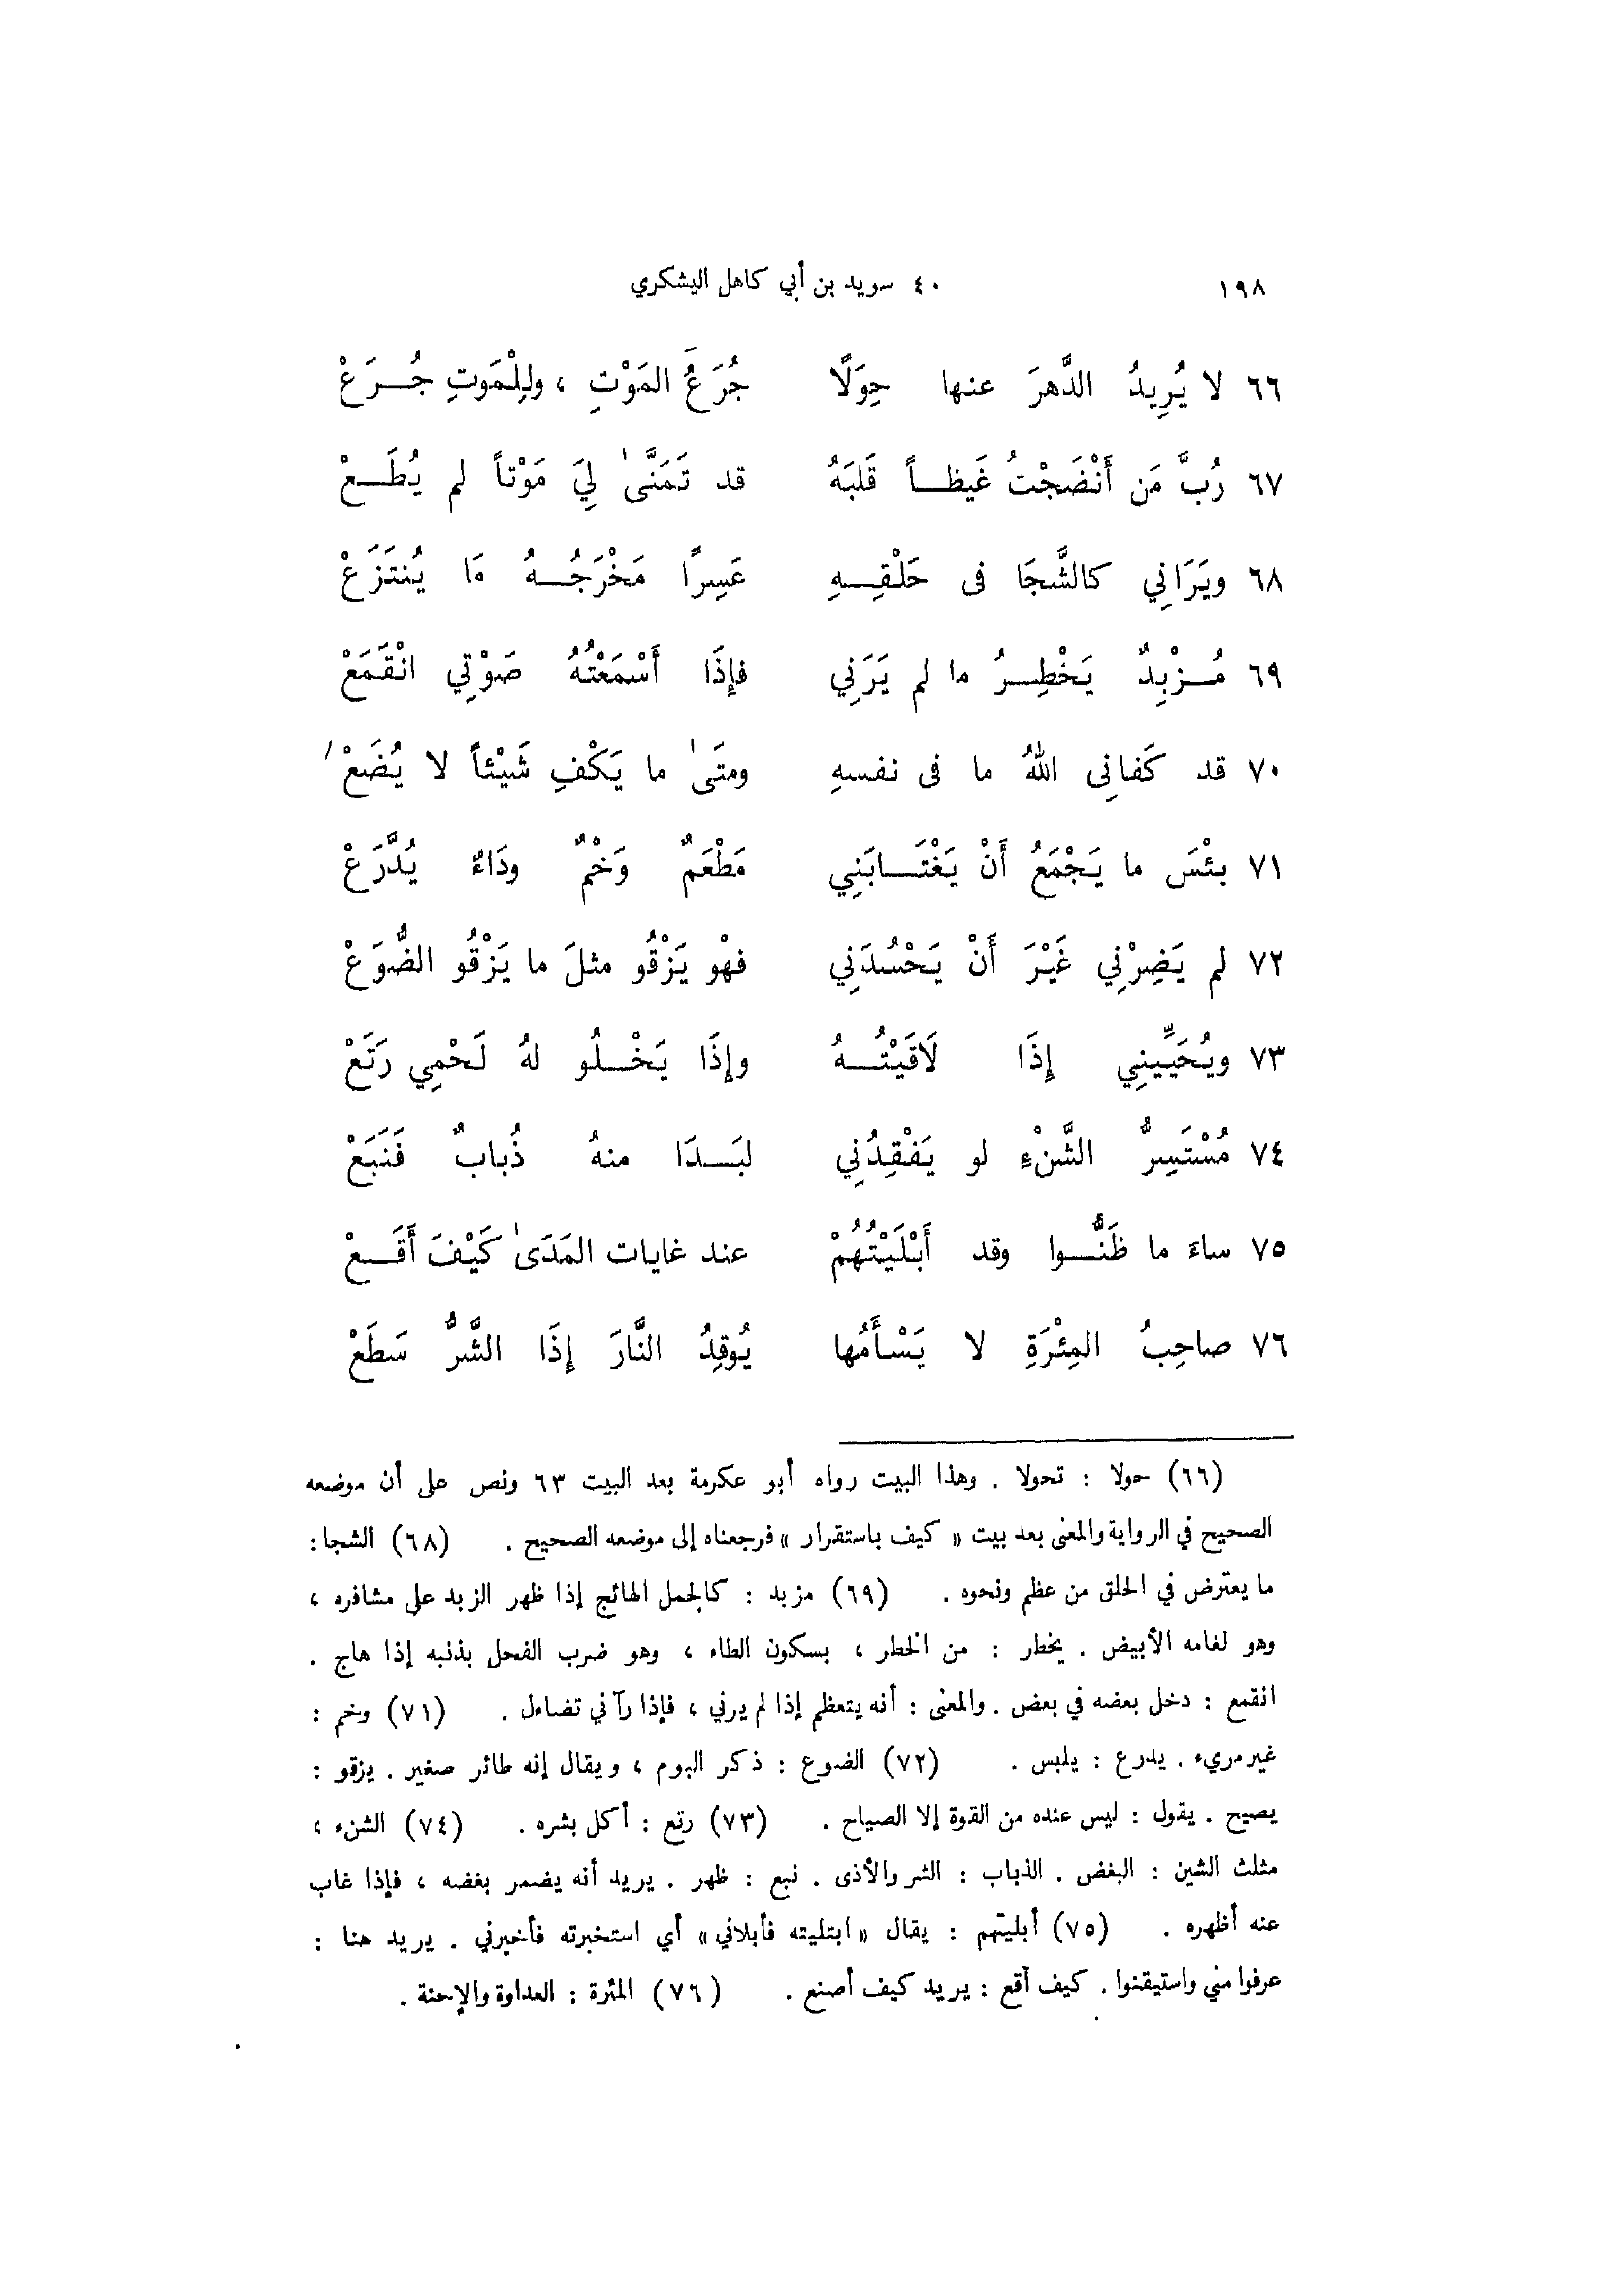 ١٩٨ ٤٠ سويد بن أبي كاهل اليشكري
٦٦ لا يُرِيدُ الدَّهرَ عنها حِوَلًا جُرَعَُ المَوْتِ ، ولِلْمَوتِ جُـــرَعْ
٦٧ رُبَّ مَن أَنْضَجْتُ غَيظـــاً قَلبَهُ قد تَمَنَّىٰ لِيَ مَوْتاً لم يُطَـــعْ
٦٨ ويَرَانِي كالشَّجَا فى حَلْقِـــهِ عَسِرًا مَخْرَجُـــهُ مَا يُنتَزَعْ
٦٩ مُـــزْبِدٌ يَخْطِـــرُ ما لم يَرَنِي فإِذَا أَسْمَعْتُهُ صَوْتِي انْقَمَعْ
٧٠ قد كَفانِى اللهُ ما فى نفسهِ ومتَىٰ ما يَكْفِ شَيْئاً لا يُضَعْ
٧١ بئْسَ ما يَجْمَعُ أَنْ يَغْتَـــابَنِي مَطْعَمٌ وَخْمٌ ودَاءٌ يُدَّرَعْ
٧٢ لم يَضِرْنِي غَيْرَ أَنْ يَحْسُدَنِي فهْو يَزْقُو مثلَ ما يَزْقُو الضُّوَعْ
٧٣ ويُحَيِّينِي إِذَا لَاقَيْتُـــهُ وإِذَا يَخْـــلُو لهُ لَحْمِي رَتَعْ
٧٤ مُسْتَسِرُّ الشَّنْءِ لو يَفْقِدُنِي لبَـــدَا منهُ ذُبابٌ فَنَبَعْ
٧٥ ساءَ ما ظَنُّـــوا وقد أَبْلَيْتُهُمْ عند غايات المَدَىٰ كَيْفَ أَقَـــعْ
٧٦ صاحِبُ المِئْرَةِ لا يَسْأَمُها يُوقِدُ النَّارَ إِذَا الشَّرُّ سَطَعْ
(٦٦) حولا : تحولا . وهذا البيت رواه أبو عكرمة بعد البيت ٦٣ ونص على أن موضعه
الصحيح في الرواية والمعنى بعد بيت « كيف باستقرار » فرجعناه إلى موضعه الصحيح . (٦٨) الشجا:
ما يعترض في الحلق من عظم ونحوه . (٦٩) مزبد : كالجمل الهائج إذا ظهر الزبد على مشافره ،
وهو لغامه الأبيض . يخطر : من الخطر ، بسكون الطاء ، وهو ضرب الفحل بذنبه إذا هاج .
انقمع : دخل بعضه في بعض . والمعنى : أنه يتعظم إذا لم يرني ، فإذا رآني تضاءل . (٧١) وخم :
غير مريء . يدرع : يلبس . (٧٢) الضوع : ذكر البوم ، ويقال إنه طائر صغير . يزقو :
يصيح . يقول : ليس عنده من القوة إلا الصياح . (٧٣) رتع : أكل بشره . (٧٤) الشنء ،
مثلث الشين : البغض . الذباب : الشر والأذى . نبع : ظهر . يريد أنه يضمر بغضه ، فإذا غاب
عنه أظهره . (٧٥) أبليتهم : يقال « ابتليته فأبلاني » أي استخبرته فأخبرني . يريد هنا :
عرفوا مني واستيقنوا . كيف آقع : يريد كيف أصنع . (٧٦) المئرة : العداوة والإحنة .